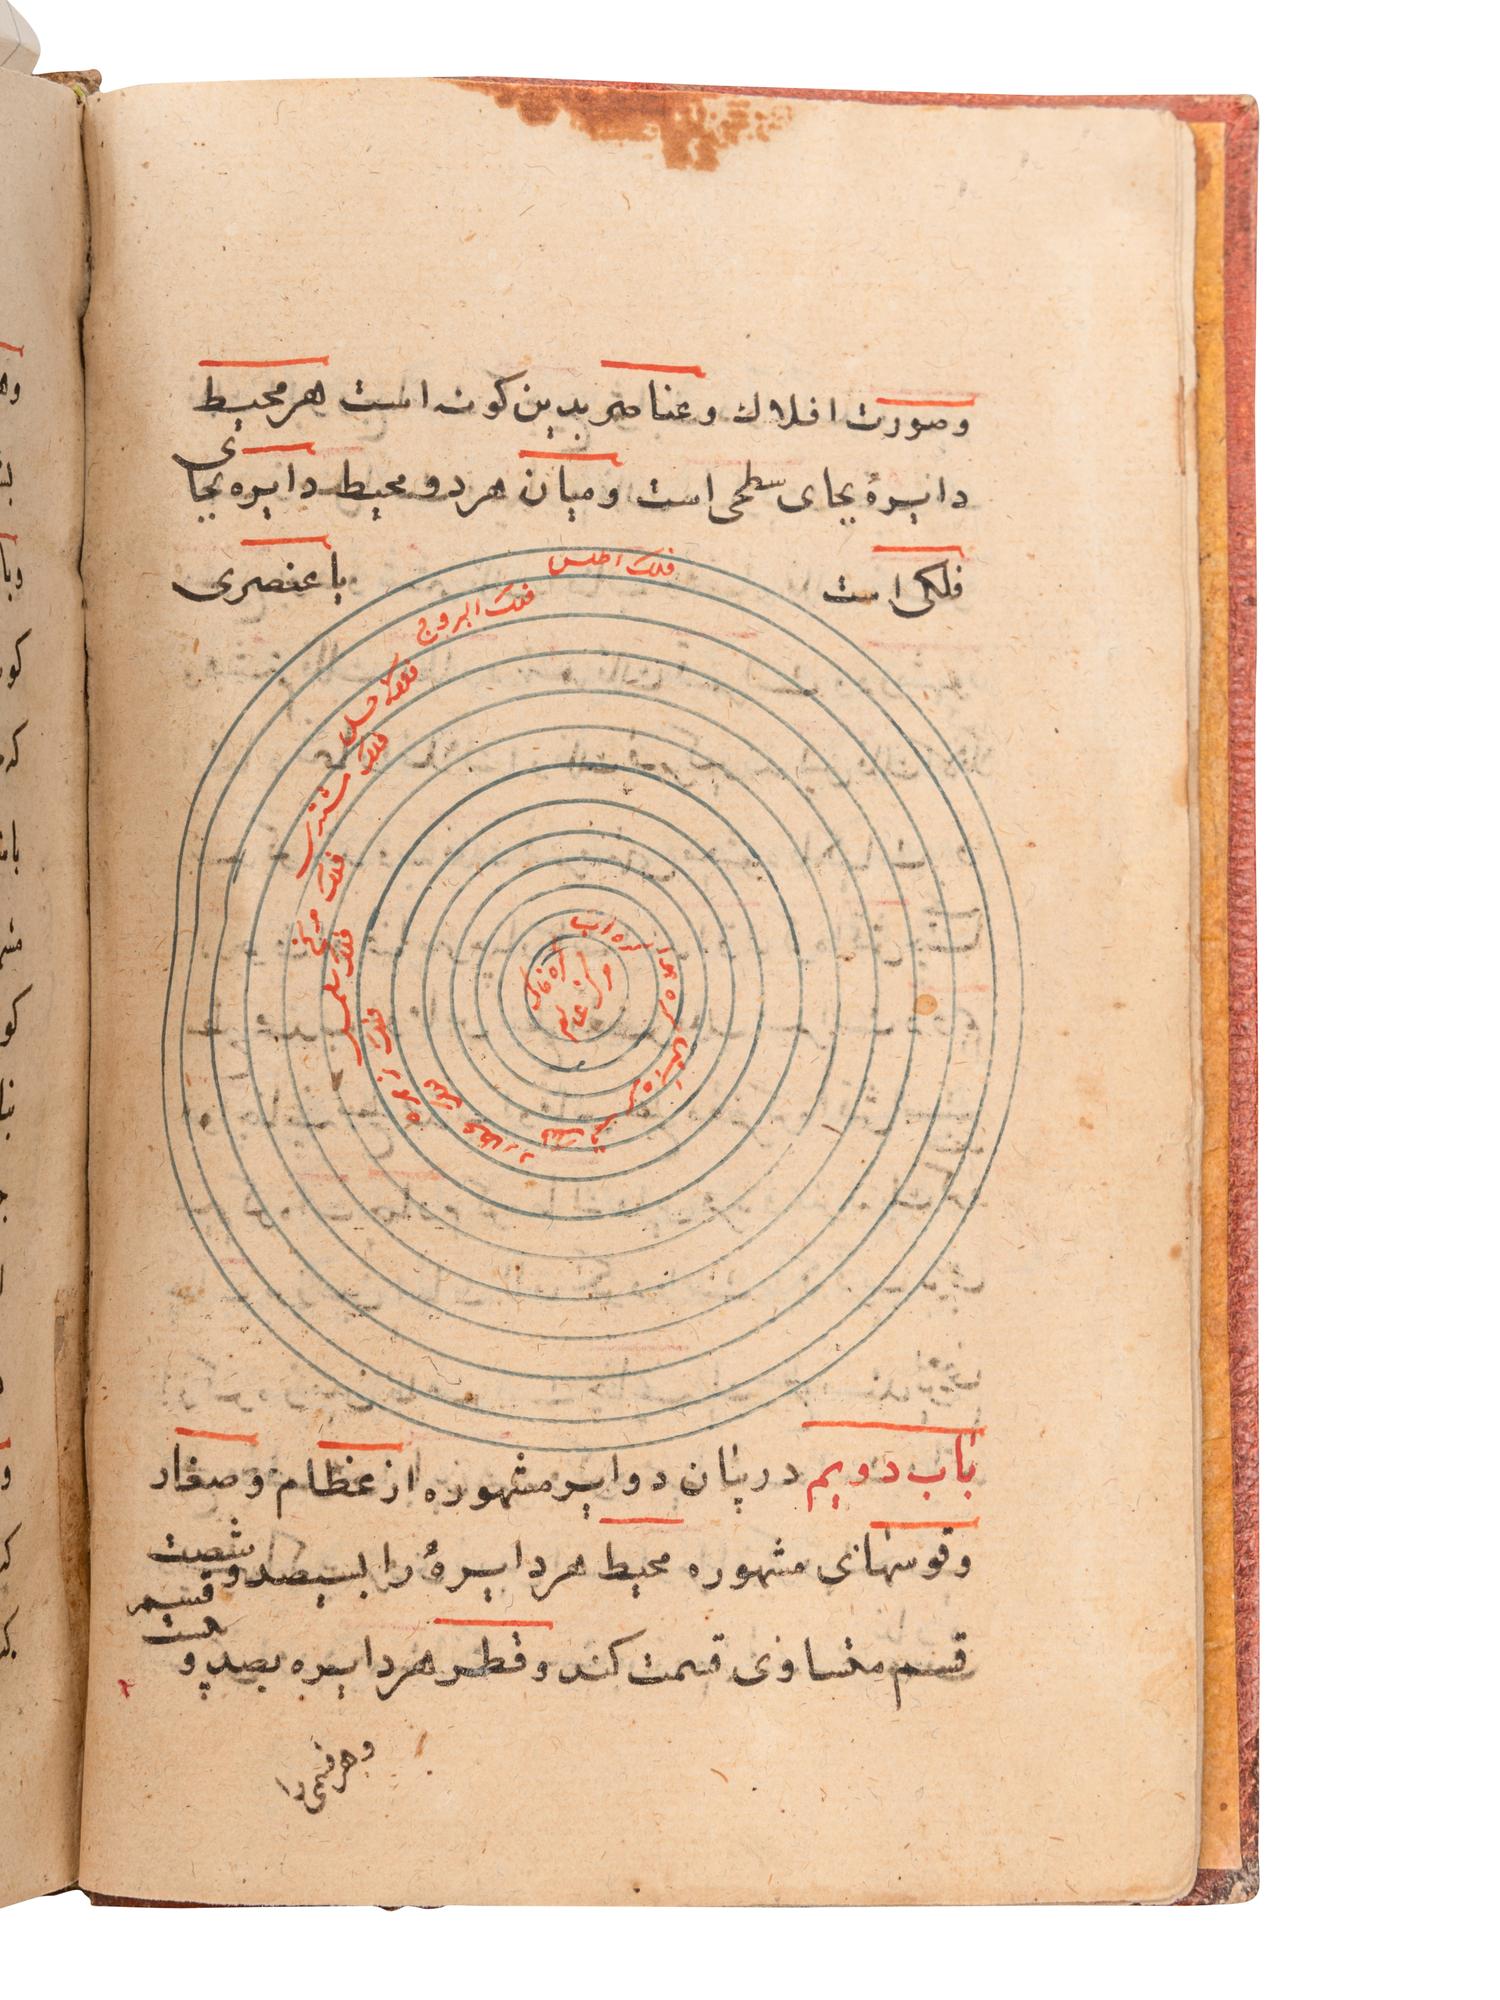 وصورت افلاك وعناصر بدین کونه است هر محیط
دایرهٔ بجای سطحی است ومیان هر دو محیط دایره بجای
فلکی است یا عنصری
فلک اطلس
فلک البروج
فلک زحل
فلک مشتری
فلک مریخ
فلک شمس
فلک زهره
فلک عطارد
فلک قمر
کره اتش
کره هوا
کره اب
کره خاک
مرکز عالم
باب دویم در بیان دوایر مشهوره از عظام وصغار
وقوسهای مشهوره محیط هر دایرهٔ را بسیصد وشصت
قسم متساوی قسمت کنند وقطر هر دایره بصد و
بیست قسم
وهر قسمی را